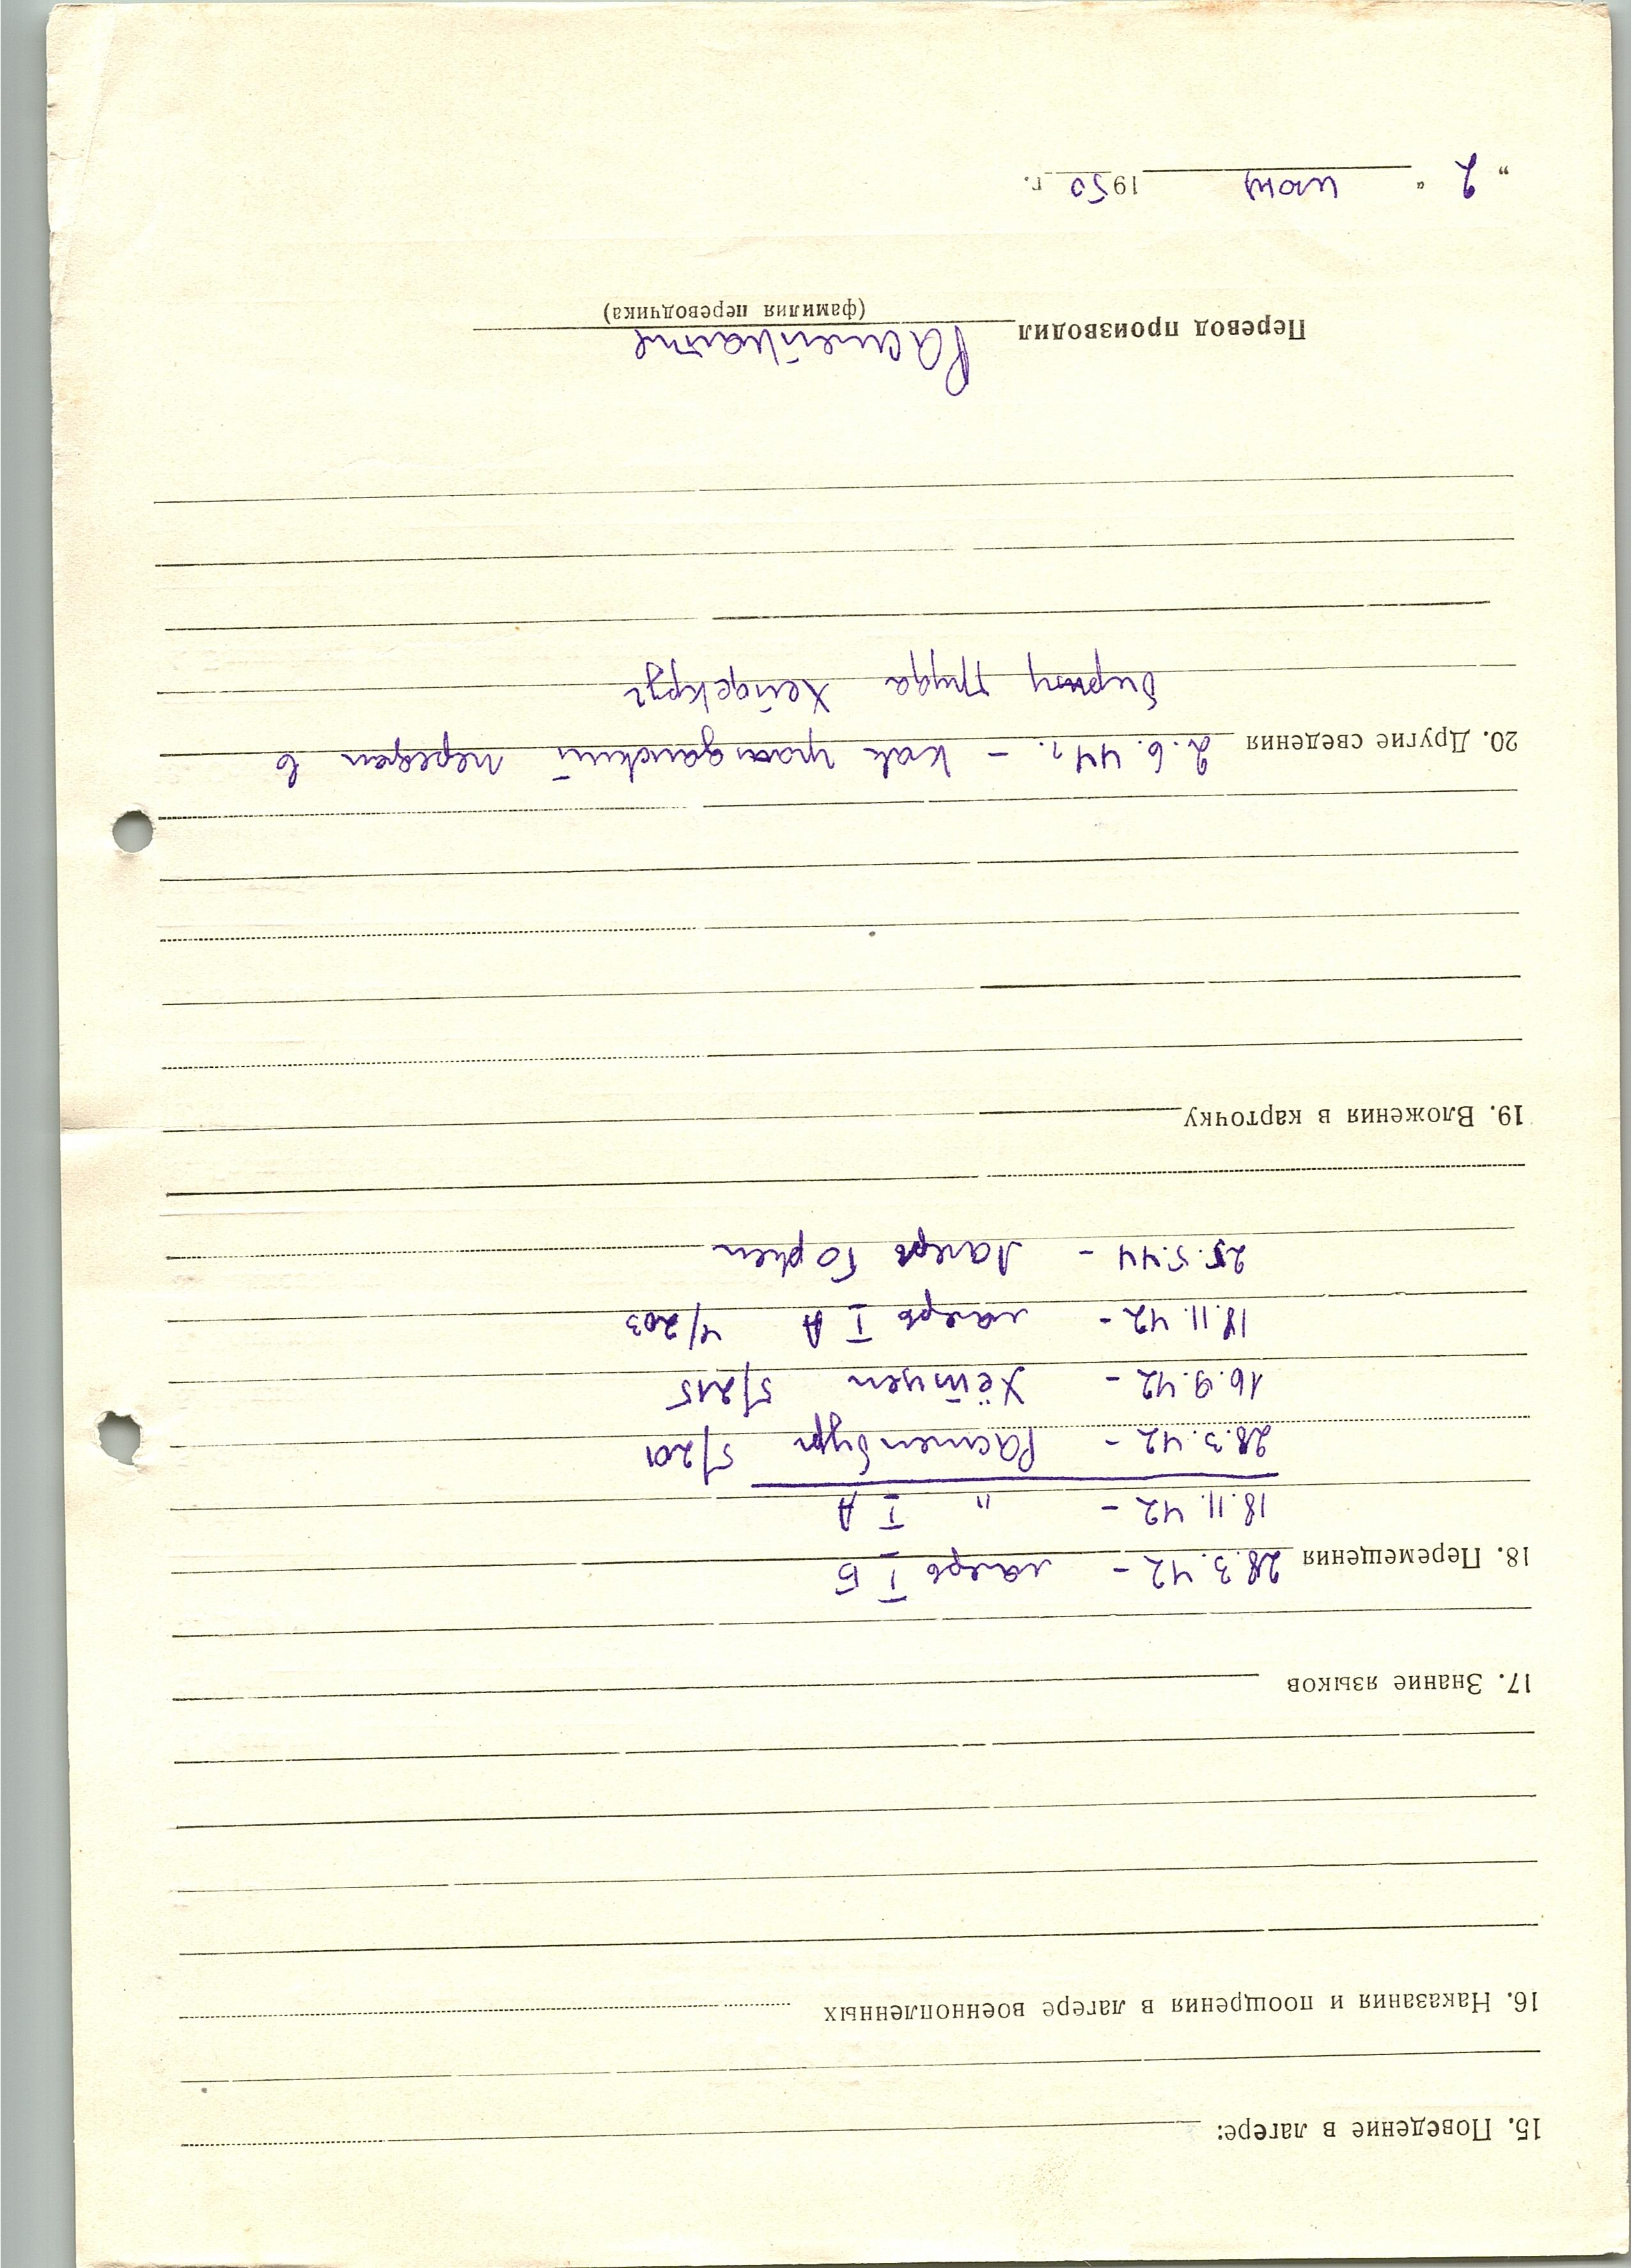 15. Поведение в лагере:
16. Наказания и поощрения в лагере военнопленных
17. Знание языков
18. Перемещения 28.3.42 - лагерь I Б
18.11.42 - " I А
28.3.42 - Растенбург 5/201
16.9.42 - Хёйнцен 5/215
18.11.42 - лагерь I А 4/203
25.5.44 - Лагерь Горкен
19. Вложения в карточку
20. Другие сведения 2.6.44 г. - как гражданский передан в
биржу труда Хейдекруг
Перевод производил
(фамилия переводчика)
" 2 " июня 1950 г.